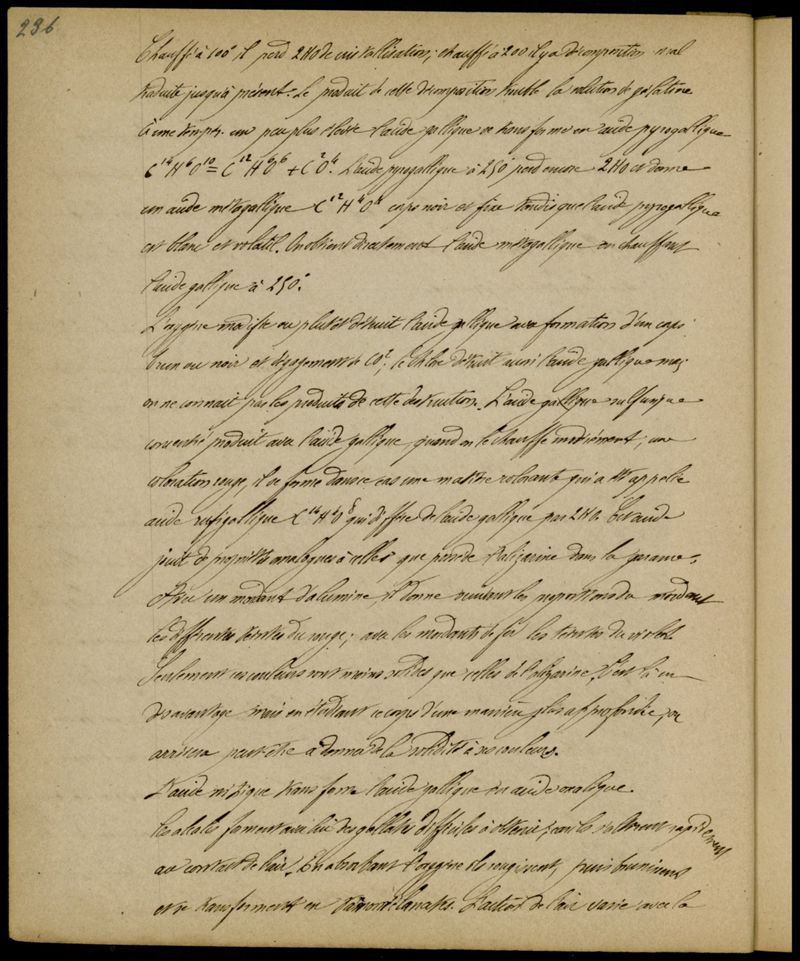 236
Chauffé à 100° il perd 2HO de cristallisation; chauffé à 200 il y a décomposition mal
étudiée jusqu'à présent. Le produit de cette décomposition trouble la solution de gélatine
A une temp. un peu plus élevée l'acide gallique se transforme en acide pyrogallique
C¹⁴H⁶O¹⁰ = C¹²H⁶O⁶ + C²O⁴. L'acide pyrogallique à 250° perd encore 2HO et donne
un acide métagallique C¹²H⁴O⁴ corps noir et fixe tandis que l'acide pyrogallique
est blanc et volatil. On obtient directement l'acide métagallique en chauffant
l'acide gallique à 250°.
L'oxygène modifie ou plutôt détruit l'acide gallique avec formation d'un corps
brun ou noir et dégagement de CO²; le chlore détruit aussi l'acide gallique mais
on ne connait pas les produits de cette destruction. L'acide gallique sulfurique
concentré produit avec l'acide gallique, quand on le chauffe modérément, une
coloration rouge, il se forme dans ce cas une matière colorante qui a été appelée
acide rufigallique C¹⁴H⁴O⁸ qui diffère de l'acide gallique par 2HO. Cet acide
jouit de propriétés analogues à celles que possède l'alizarine dans la garance.
Avec un mordant d'alumine, il donne suivant les proportions du mordant
les différentes teintes du rouge; avec les mordants de fer les teintes du violet.
Seulement ces couleurs sont moins solides que celles de l'alizarine. C'est là un
désavantage mais en étudiant ce corps d'une manière plus approfondie, on
arrivera peut-être à donner de la solidité à ses couleurs.
L'acide nitrique transforme l'acide gallique en acide oxalique.
Les alcalis forment avec lui des gallates difficiles à obtenir; car ils s'altèrent rapidement
au contact de l'air. En absorbant l'oxygène ils rougissent, puis brunissent
et se transforment en. L'action de l'air varie avec la